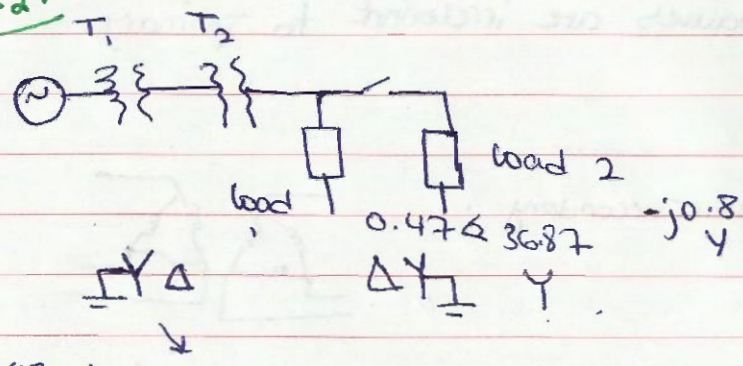 T1 T2
~
load 2
load
1
0.47∠36.87 -j0.8
Y Δ Δ Y Y Y